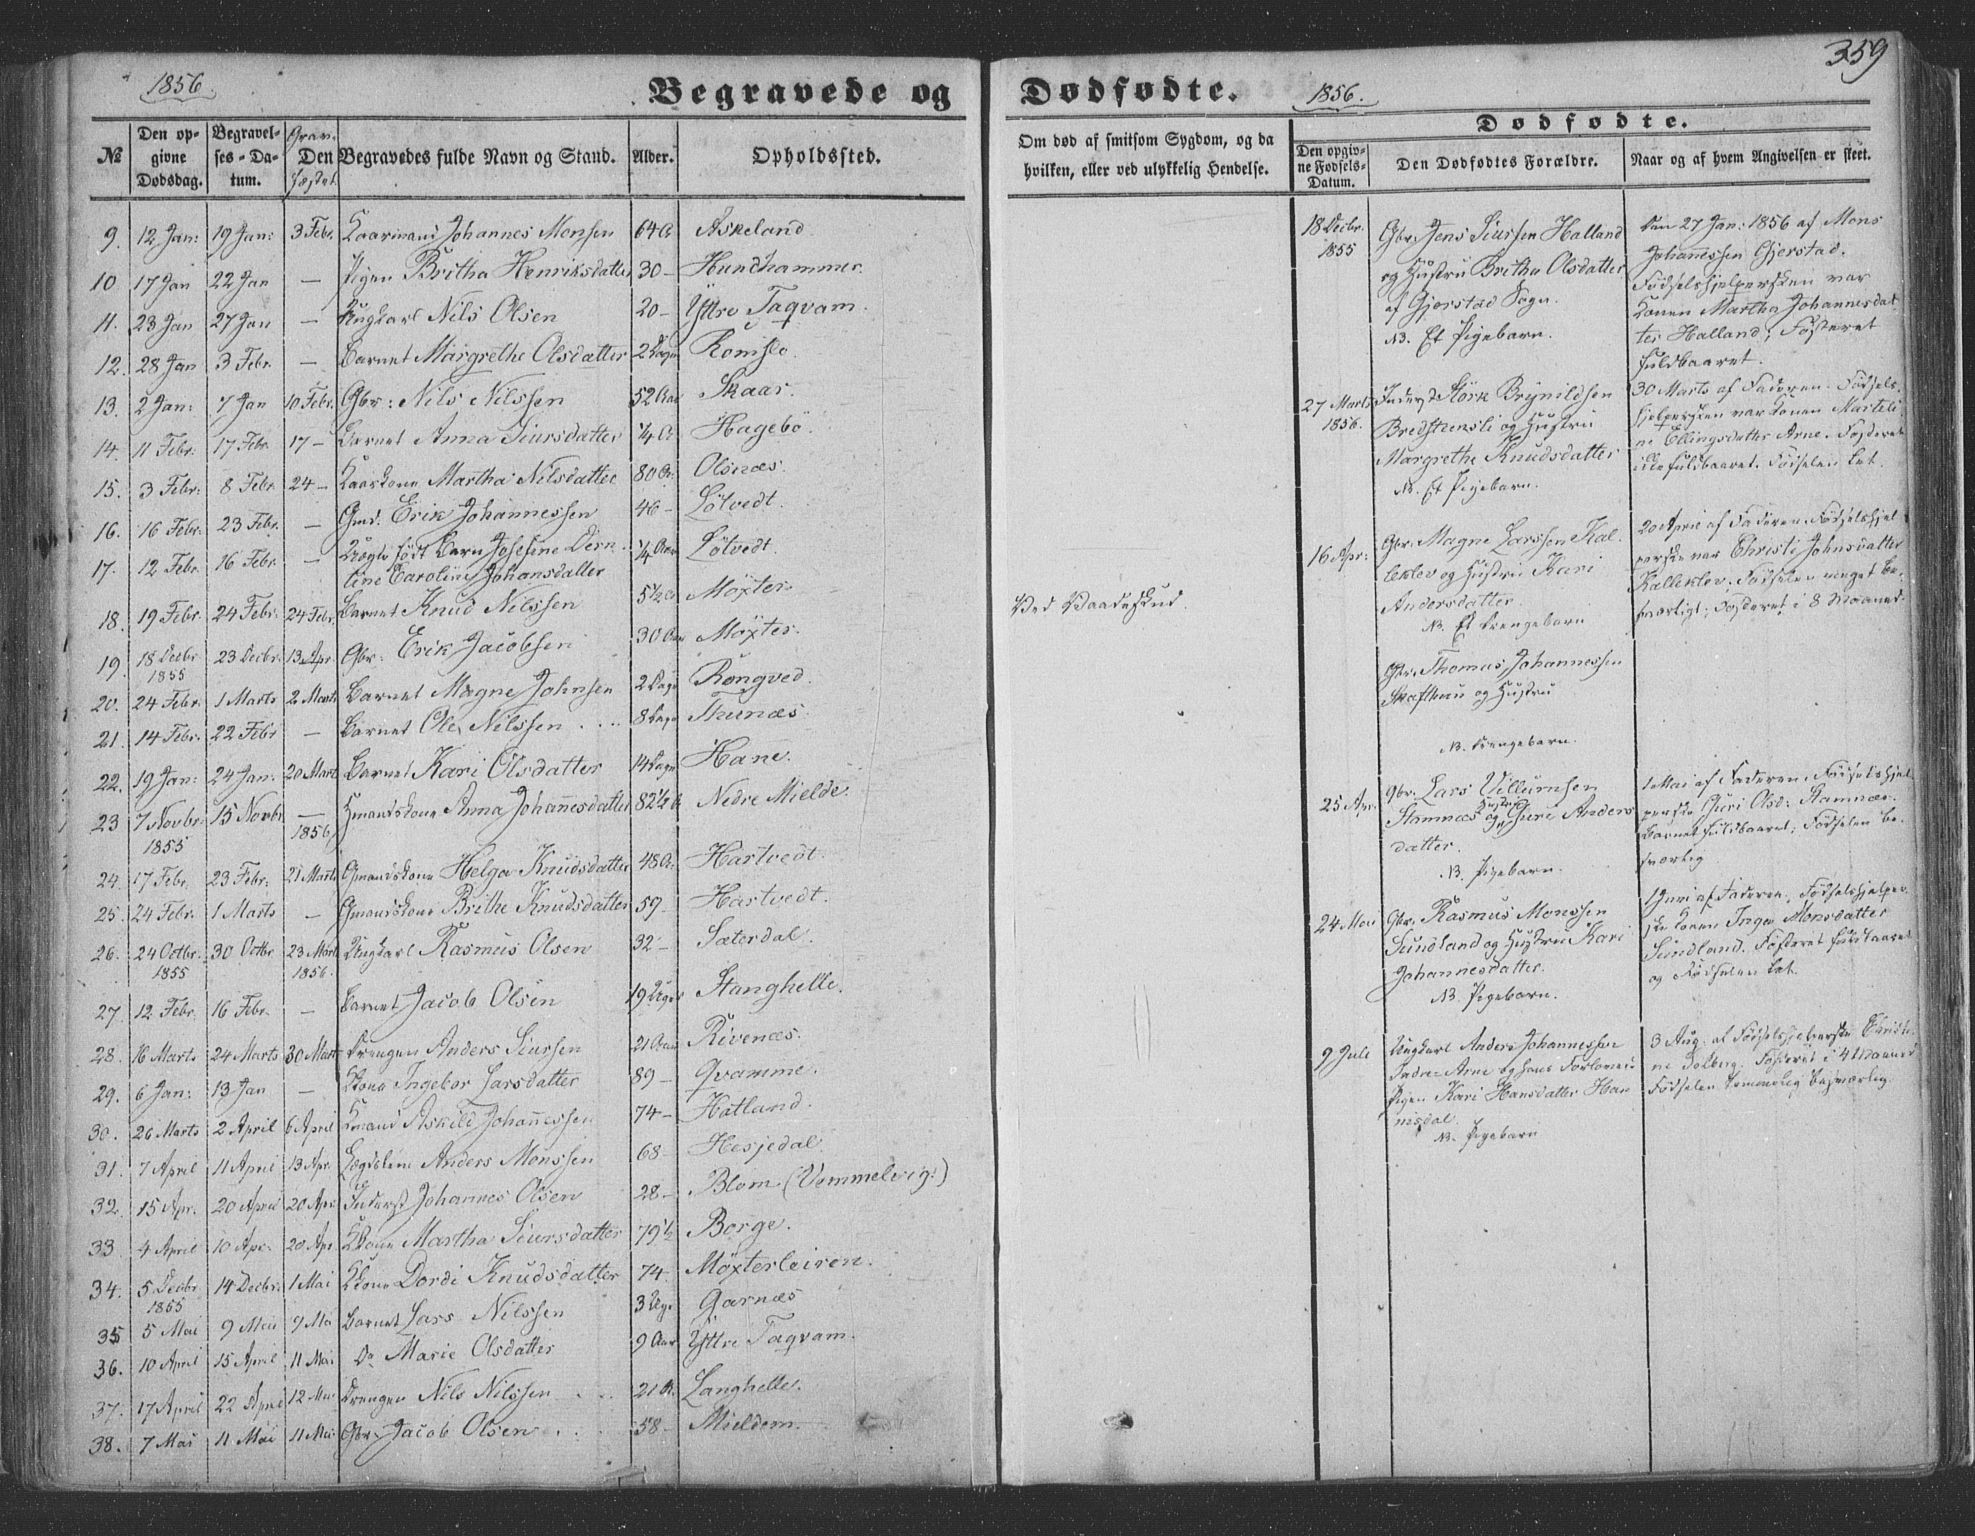 359
1856.
Begravede og
Dødfødte.
1856.
№
Den opgivne Dødsdag.
Begravelses-Datum.
Grav. Den fæstet.
Begravedes fulde Navn og Stand.
Alder.
Opholdssted.
Om død af smitsom Sygdom, og da hvilken, eller ved ulykkelig Hendelse.
Dødfødte.
Den opgivne Fødsels-Datum.
Den Dødfødtes Forældre.
Naar og af hvem Angivelsen er skeet.
9. 12 Jan: 19 Jan: 3 Febr. Kaarmand Johannes Monsen 64 A Askeland
10 17 Jan 22 Jan — Pigen Britha Henriksdatter 30 — Hundhammer
11. 23 Jan 27 Jan — Ungkarl Nils Olsen 20 — Yttre Taqvam.
12. 28 Jan 3 Febr. — Barnet Margrethe Olsdatter 2 Dage Romslo.
13. 2 Jan: 7 Jan 10 Febr. Gbr: Nils Nilssen 52 Aar Skaar.
14. 11 Febr. 17 Febr. 17 — Barnet Anna Siursdatter ¼ A. Hagebö.
15. 3 Febr: 8 Febr. 24 — Kaarkone Martha Nilsdatter 80 A. Olsnæs.
16. 16 Febr. 23 Febr. — Gmd. Erik Johannessen 46 — Lötvedt.
17. 12 Febr. 16 Febr. — Uægte født Barn Josefine Bern-
tine Caroline Johansdatter ¼ Aar Lötvedt.
18. 19 Febr. 24 Febr. 24 Febr. Barnet Knud Nilssen 5½ A Möxter
19. 18 Decbr 1855 23 Decbr. 13 Apr. Gbr: Erik Jacobsen 30 Aar Möxter. Ved Vaadeskud.
20. 24 Febr. 1 Marts 2 Marts Barnet Magne Johnsen 2 Dage Rongved.
21. 14 Febr. 22 Febr — Barnet Ole Nilssen 8 Dage Thunæs.
22. 19 Jan: 24 Jan: 20 Marts Barnet Kari Olsdatter 14 Dage Hane.
23 7 Novbr. 1855 15 Novbr — 1856 Gmandskone Anna Johannesdatter 82½ A Nedre Mielde.
24. 17 Febr. 23 Febr. 21 Marts Gmandskone Helga Knudsdatter 48 A. Hartvedt.
25. 24 Febr. 1 Marts — Gmandskone Brithe Knudsdatter 59 — Hartvedt.
26. 24 Octbr. 1855 30 Octbr 23 Marts 1856. Ungkarl Rasmus Olsen 32 — Sæterdal
27. 12 Febr. 16 Febr. — Barnet Jacob Olsen 19 Uger Stanghelle.
28. 16 Marts 24 Marts 30 Marts Drengen Anders Siursen 21 Aar Rivenæs.
29. 6 Jan: 13 Jan — Kkone Ingebor Larsdatter 89 — Qvamme.
30. 26 Marts 2 April 6 April Kmand Askild Johannessen 74 — Hatland.
31. 7 April 11 April 13 Apr. Lægdslem Anders Monssen 68 — Hesjedal
32. 15 Apr. 20 April 20 Apr Inderst Johannes Olsen 28 — Blom (Vommelvig:)
33 4 April 10 Apr. 20 Apr Kkone Martha Siursdatter 79½ Borge.
34. 5 Decbr 1855 14 Decbr. 1 Mai Kkone Dordi Knudsdatter 74 — Möxterleiren.
35 5 Mai 9 Mai 9 Mai Barnet Lars Nilssen 3 Uger Garnæs
36. 10 April 15 April 11 Mai Do Marie Olsdatter 9 Aar Yttre Taqvam.
37. 17 April 22 April 12 Mai Drengen Nils Nilssen 21 A. Langhelle.
38. 7 Mai 11 Mai 11 Mai Gbr. Jacob Olsen 58 — Mieldem.
18 Decbr. 1855
Gbr. Jens Siurssen Halland
og Hustru Britha Olsdatter
af Gjerstad Sogn.
NB. Et Pigebarn.
Den 27 Jan: 1856 af Mons
Johannessen Gjerstad.
Fødselshjelpersken var
Konen Martha Johannesdat-
ter Halland; Fosteret
fuldbaaret.
27 Marts 1856.
Inderst Störk Brynildsen
Bredstrensli og Hustru
Margrethe Knudsdatter
NB. Et Pigebarn.
30 Marts af Faderen. Fødsels-
hjelpersken var Konen Marteli-
ne Ellingsdatter Arne. Fosteret
ille fuldbaaret. Fødselen let.
16 Apr:
Gbr. Magne Larssen Kal-
leklev og Hustru Kari
Andersdatter.
NB. Et Drengebarn
20 April af Faderen. Fødselshjel-
perske var Christi Johnsdatter
Kalleklev. Fødselen meget be-
sværligt; Fosteret i 8 Maaned.
Gbr. Thomas Johannessen
Skaftkau og Hustru
NB. Drengebarn.
25 Apr.
Gbr. Lars Villumsen
Stamnæs og Hustru Guri Anders-
datter.
NB. Pigebarn.
1 Mai af Faderen. Fødselshjel-
perske Guri Olsd: Stamnæs.
Barnet fuldbaaret; Fødselen be-
sværlig
24 Mai
Gbr. Rasmus Monssen
Sundland og Hustru Kari
Johannesdatter.
NB. Pigebarn.
1 Juni af Faderen. Fødselshjelper-
ske Konen Inger Monsdatter
Sundland. Fosteret fuldbaaret
og Fødselen let.
9 Juli
Ungkarl Anders Johannessen
Indre-Arne og hans Forlovede
Pigen Kari Hansdatter Han-
nisdal.
NB. Pigebarn
3 Aug: af Fødselshjelperske Christi-
ne Solberg. Fosteret i 4 Maaned
Fødselen temmelig besværlig